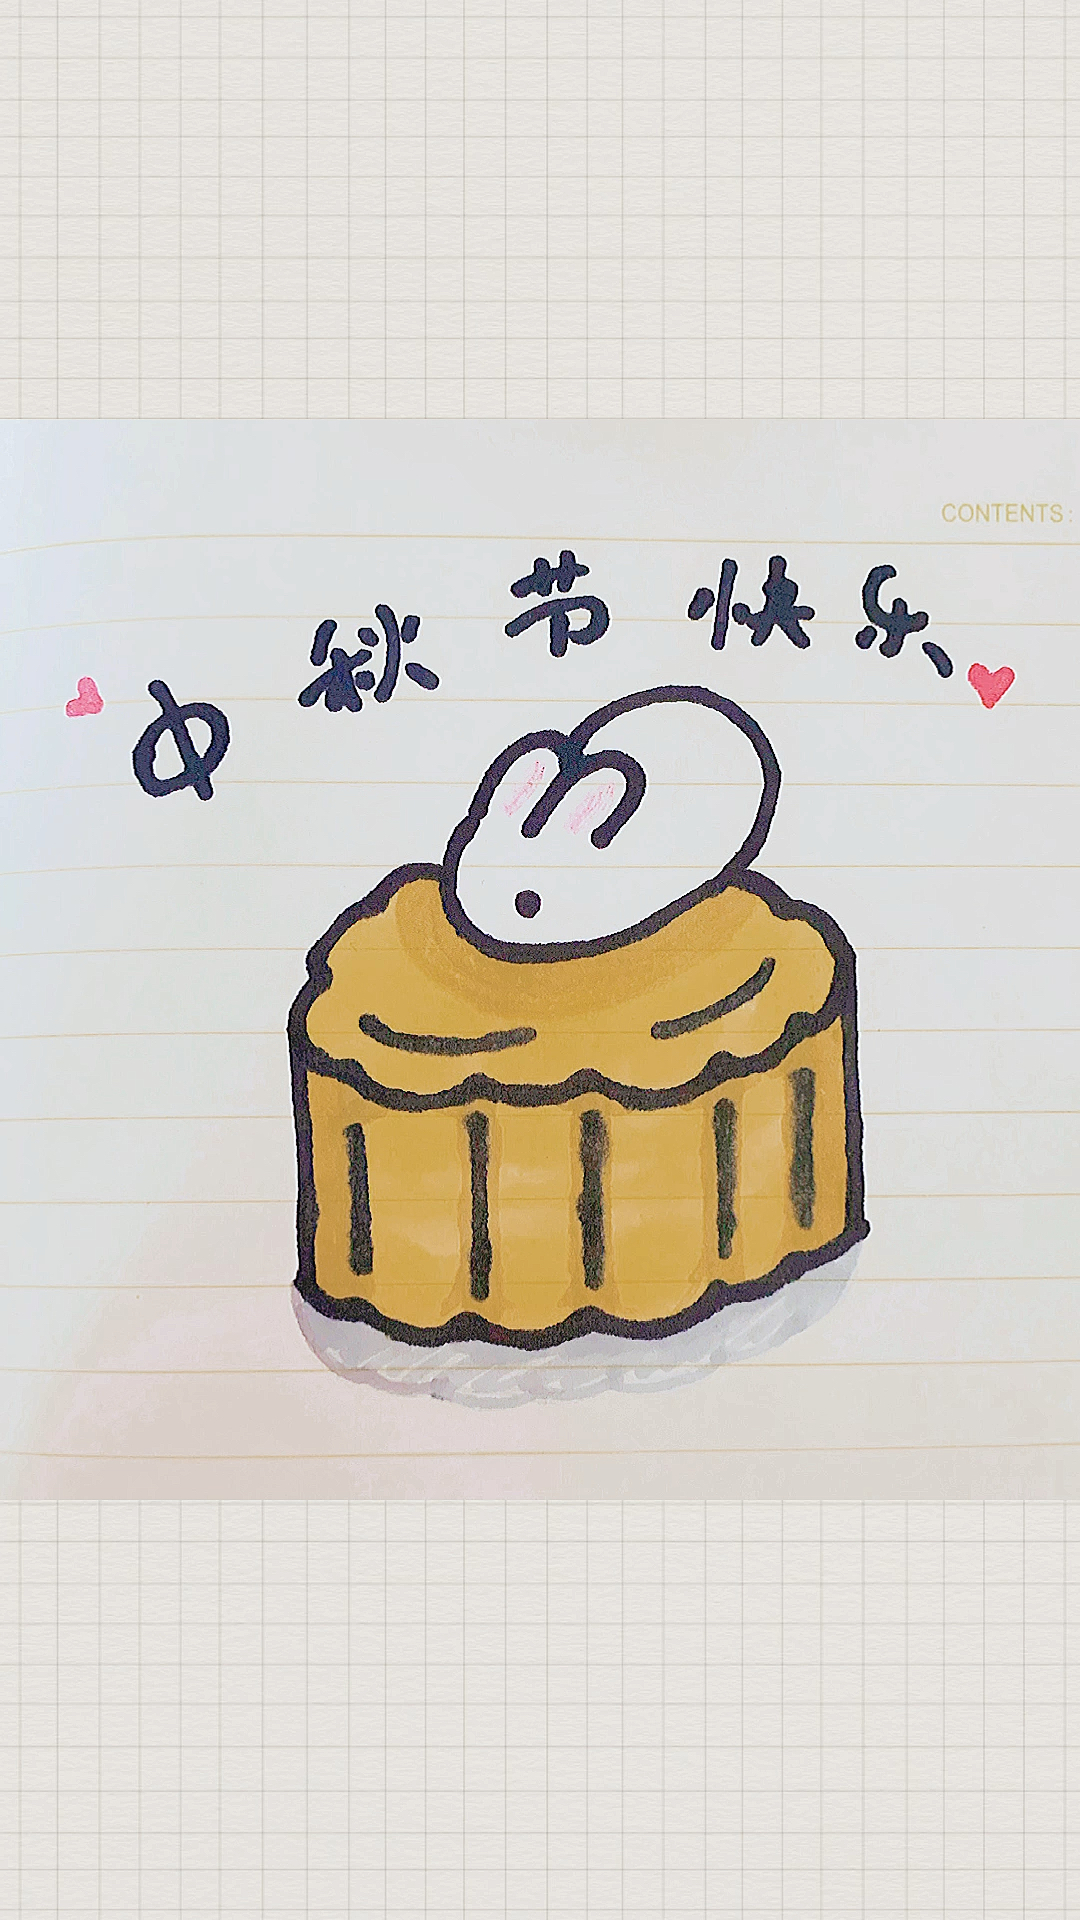 CONTENTS:
中秋节快乐